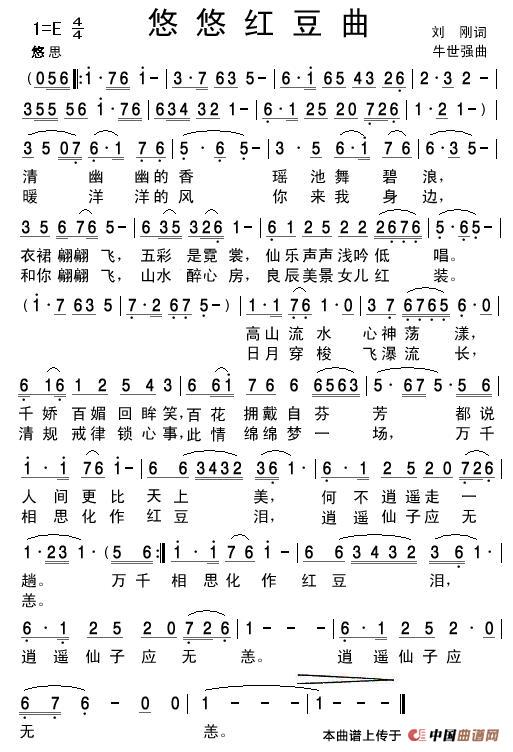 悠悠红豆曲
1=E 4/4
刘 刚词
悠思
牛世强曲
(056 ‖: 1·76 1- | 3·7 63 5- | 6·1 65 43 26 |
355 56 1·76 | 634 32 1- | 6·1 25 20 726 | 1·2 1-) |
3 5 07 6·1 | 6·1 76 5- | 5· 6 5- | 3·1 65 3- |
清 幽 幽的香 瑶池舞碧浪,
暖 洋 洋的风 你来我身边,
3 5 6 76 5- | 6 35 326- | 6 1 25 22 2676 | 5·65- |
衣裙翩翩飞, 五彩是霓裳, 仙乐声声浅吟低 唱。
和你翩翩飞, 山水醉心房, 良辰美景女儿红 装。
(1·7 63 5 | 7·2 67 5-) | 1·1 76 1 0 | 3·7 6765 6·0 |
高山流水 心神荡漾,
日月穿梭 飞瀑流长,
6 16 1 2 5 43 | 6 61 7 6 6563 | 5·67 5·56 |
千娇百媚回眸笑, 百花拥戴自芬芳 都说
清规戒律锁心事, 此情绵绵梦一场, 万千
1·1 76 1- | 6 6 3432 36· | 6·1 25 20 726 |
人间更比天上美, 何不逍遥走一
相思化作红豆泪, 逍遥仙子应无
1·23 1·(5 6 :‖ 1·1 76 1- | 6 6 3432 36 1· |
趟。 万千相思化作红豆泪,
恙。
6·1 25 20 726 | 1-- | 6·1 25 20 |
逍遥仙子应无 恙。 逍遥仙子应
6 7 6-00 | 1--- | 1--‖
无 恙。
本曲谱上传于 中国曲谱网